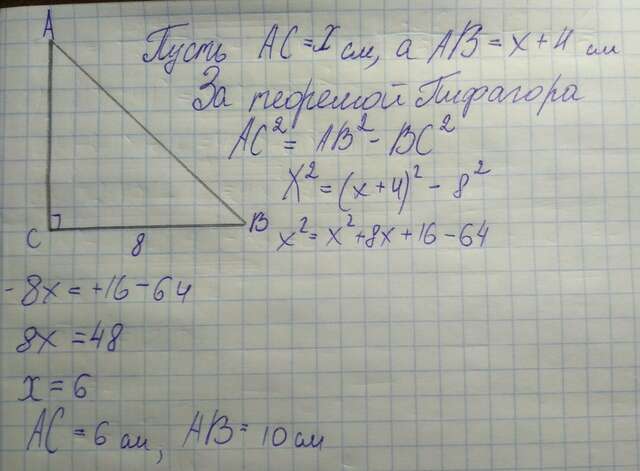 A
Пусть AC = x см, а AB = x + 4 см
За теоремой Пифагора
AC² = AB² - BC²
x² = (x + 4)² - 8²
C
8
B
x² = x² + 8x + 16 - 64
- 8x = +16 - 64
8x = 48
x = 6
AC = 6 см, AB = 10 см